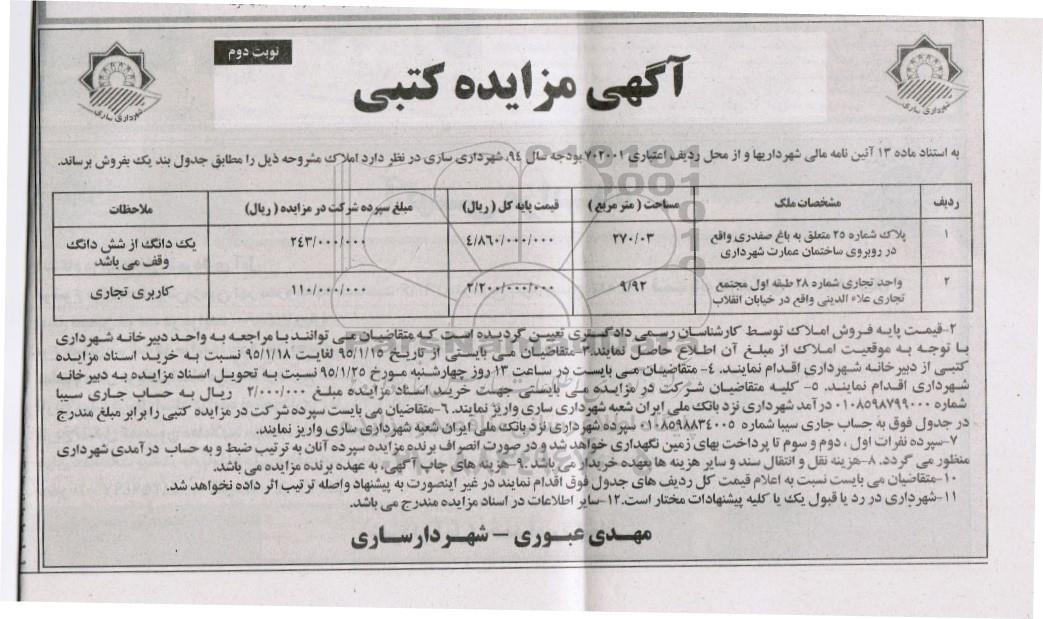 نوبت دوم
آگهی مزایده کتبی
شهرداری ساری
شهرداری ساری
به استناد ماده ۱۳ آئین نامه مالی شهرداریها و از محل ردیف اعتباری ۷۰۲۰۰۱ بودجه سال ۹۴، شهرداری ساری در نظر دارد املاک مشروحه ذیل را مطابق جدول بند یک بفروش برساند.
ردیف مشخصات ملک مساحت ( متر مربع ) قیمت پایه کل ( ریال) مبلغ سپرده شرکت در مزایده ( ریال) ملاحظات
۱ پلاک شماره ۲۵ متعلق به باغ صفدری واقع ۲۷۰/۰۳ ۴/۸۶۰/۰۰۰/۰۰۰ ۲۴۳/۰۰۰/۰۰۰ یک دانگ از شش دانگ
در روبروی ساختمان عمارت شهرداری وقف می باشد
۲ واحد تجاری شماره ۲۸ طبقه اول مجتمع ۹/۹۲ ۲/۲۰۰/۰۰۰/۰۰۰ ۱۱۰/۰۰۰/۰۰۰ کاربری تجاری
تجاری علاء الدینی واقع در خیابان انقلاب
۲-قیمت پایه فروش املاک توسط کارشناسان رسمی دادگستری تعیین گردیده است که متقاضیان می توانند با مراجعه به واحد دبیرخانه شهرداری
با توجه به موقعیت املاک از مبلغ آن اطلاع حاصل نمایند.۳-متقاضیان می بایستی از تاریخ ۹۵/۱/۱۵ لغایت ۹۵/۱/۱۸ نسبت به خرید اسناد مزایده
کتبی از دبیرخانه شهرداری اقدام نمایند. ۴- متقاضیان می بایست در ساعت ۱۳ روز چهارشنبه مورخ ۹۵/۱/۲۵ نسبت به تحویل اسناد مزایده به دبیرخانه
شهرداری اقدام نمایند. ۵- کلیه متقاضیان شرکت در مزایده می بایستی جهت خرید اسناد مزایده مبلغ ۲/۰۰۰/۰۰۰ ریال به حساب جاری سیبا
شماره ۰۱۰۸۵۹۸۷۹۹۰۰۰ درآمد شهرداری نزد بانک ملی ایران شعبه شهرداری ساری واریز نمایند. ۶-متقاضیان می بایست سپرده شرکت در مزایده کتبی را برابر مبلغ مندرج
در جدول فوق به حساب جاری سیبا شماره ۰۱۰۸۵۹۸۸۳۴۰۰۵ سپرده شهرداری نزد بانک ملی ایران شعبه شهرداری ساری واریز نمایند.
۷-سپرده نفرات اول ، دوم و سوم تا پرداخت بهای زمین نگهداری خواهد شد و در صورت انصراف برنده مزایده سپرده آنان به ترتیب ضبط و به حساب درآمدی شهرداری
منظور می گردد. ۸-هزینه نقل و انتقال سند و سایر هزینه ها بعهده خریدار می باشد. ۹-هزینه های چاپ آگهی، به عهده برنده مزایده می باشد.
۱۰-متقاضیان می بایست نسبت به اعلام قیمت کل ردیف های جدول فوق اقدام نمایند در غیر اینصورت به پیشنهاد واصله ترتیب اثر داده نخواهد شد.
۱۱-شهرداری در رد یا قبول یک یا کلیه پیشنهادات مختار است.۱۲-سایر اطلاعات در اسناد مزایده مندرج می باشد.
مهدی عبوری - شهردار ساری
ParsNamadData